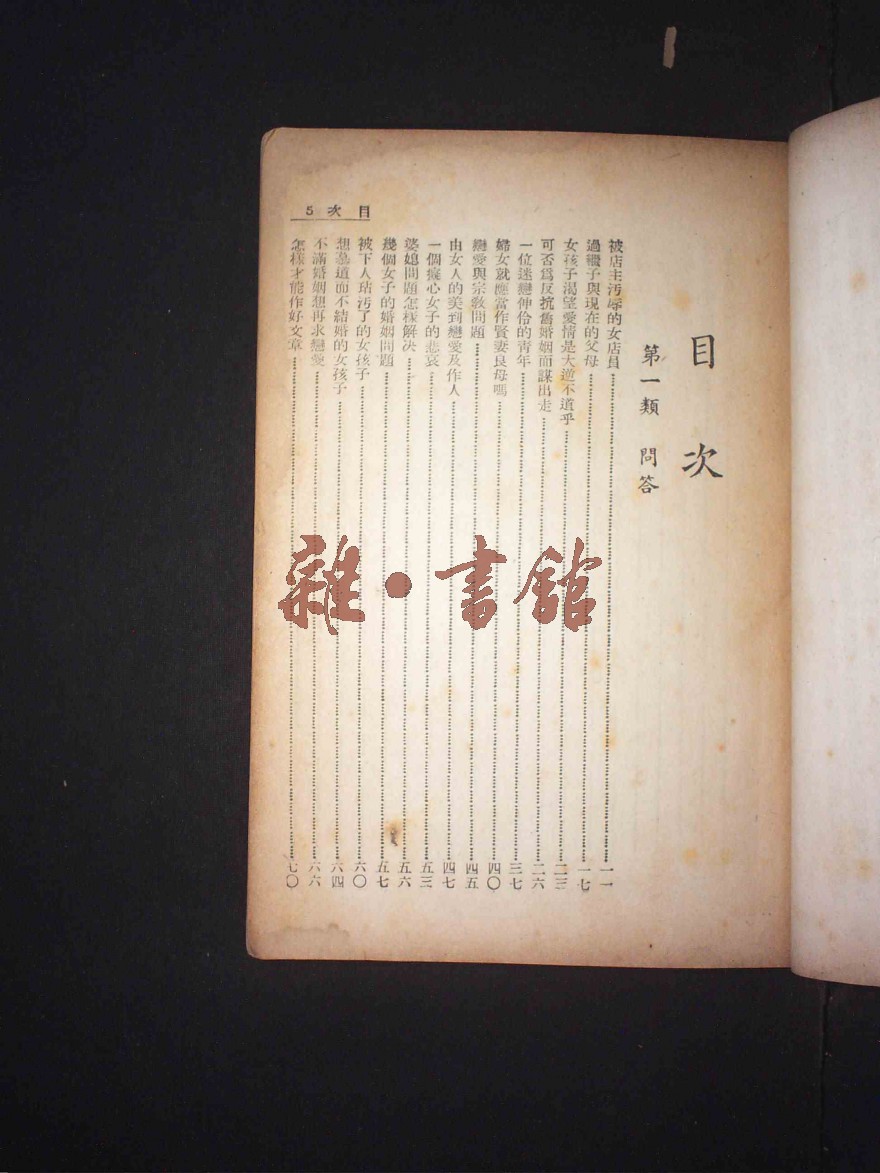 目次
第一類　問答
被店主汚辱的女店員……一一
過繼子與現在的父母……一七
女孩子渴望愛情是大逆不道乎……二三
可否爲反抗舊婚姻而謀出走……二六
一位迷戀伸伶的青年……三七
婦女就應當作賢妻良母嗎……四〇
戀愛與宗敎問題……四五
由女人的美到戀愛及作人……四七
一個癡心女子的悲哀……五三
婆媳問題怎樣解决……五六
幾個女子的婚姻問題……五七
被下人玷汚了的女孩子……六〇
想慕道而不結婚的女孩子……六四
不滿婚姻想再求戀愛……六六
怎樣才能作好文章……七〇
目次 5
雜·書館